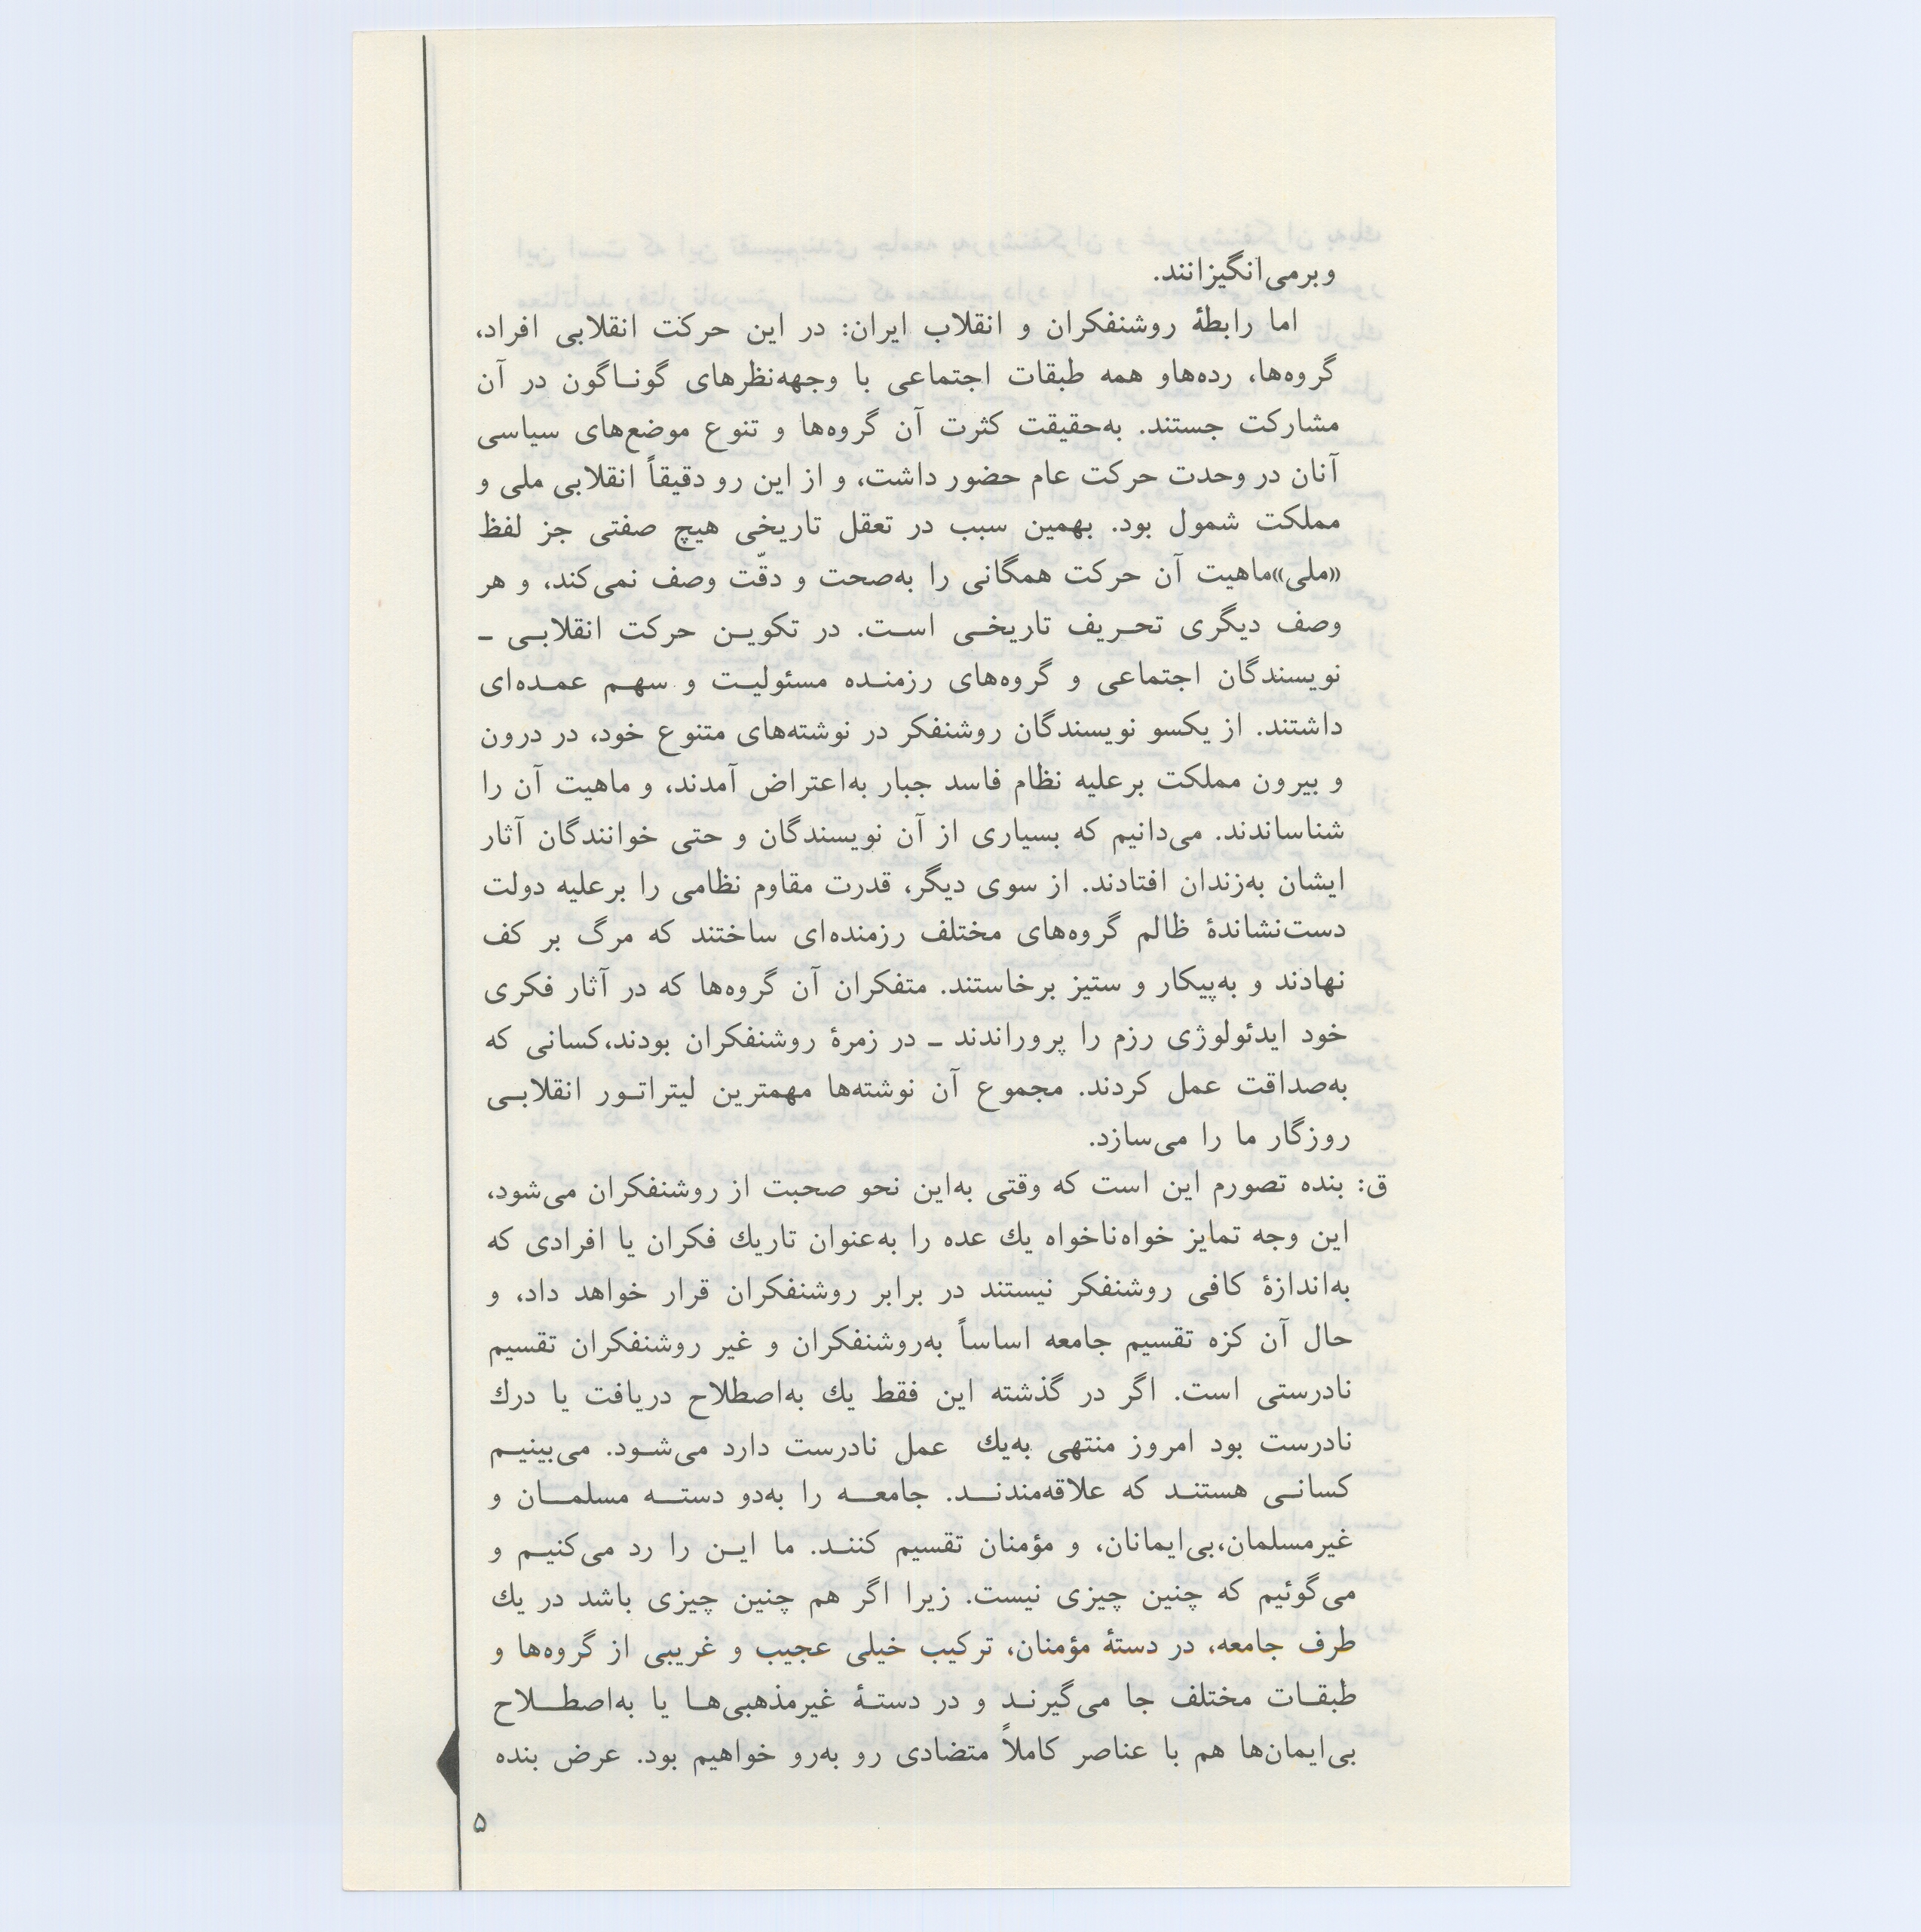 وبرمی‌انگیزانند.
اما رابطهٔ روشنفکران و انقلاب ایران: در این حرکت انقلابی افراد،
گروه‌ها، رده‌هاو همه طبقات اجتماعی با وجهه‌نظرهای گونـاگون در آن
مشارکت جستند. به‌حقیقت کثرت آن گروه‌ها و تنوع موضع‌های سیاسی
آنان در وحدت حرکت عام حضور داشت، و از این رو دقیقاً انقلابی ملی و
مملکت شمول بود. بهمین سبب در تعقل تاریخی هیچ صفتی جز لفظ
«ملی»ماهیت آن حرکت همگانی را به‌صحت و دقّت وصف نمی‌کند، و هر
وصف دیگری تحـریف تاریخـی اسـت. در تکویـن حرکت انقلابـی ـ
نویسندگان اجتماعی و گروه‌های رزمنـده مسئولیـت و سهـم عمـده‌ای
داشتند. از یکسو نویسندگان روشنفکر در نوشته‌های متنوع خود، در درون
و بیرون مملکت برعلیه نظام فاسد جبار به‌اعتراض آمدند، و ماهیت آن را
شناساندند. می‌دانیم که بسیاری از آن نویسندگان و حتی خوانندگان آثار
ایشان به‌زندان افتادند. از سوی دیگر، قدرت مقاوم نظامی را برعلیه دولت
دست‌نشاندهٔ ظالم گروه‌های مختلف رزمنده‌ای ساختند که مرگ بر کف
نهادند و به‌پیکار و ستیز برخاستند. متفکران آن گروه‌ها که در آثار فکری
خود ایدئولوژی رزم را پروراندند ـ در زمرهٔ روشنفکران بودند،کسانی که
به‌صداقت عمل کردند. مجموع آن نوشته‌ها مهمترین لیتراتـور انقلابـی
روزگار ما را می‌سازد.
ق: بنده تصورم این است که وقتی به‌این نحو صحبت از روشنفکران می‌شود،
این وجه تمایز خواه‌ناخواه یك عده را به‌عنوان تاریك فکران یا افرادی که
به‌اندازهٔ کافی روشنفکر نیستند در برابر روشنفکران قرار خواهد داد، و
حال آن کزه تقسیم جامعه اساساً به‌روشنفکران و غیر روشنفکران تقسیم
نادرستی است. اگر در گذشته این فقط یك به‌اصطلاح دریافت یا درك
نادرست بود امروز منتهی به‌یك عمل نادرست دارد می‌شـود. می‌بینیـم
کسانـی هستنـد که علاقه‌مندنـد. جامعـه را به‌دو دستـه مسلمـان و
غیرمسلمان،بی‌ایمانان، و مؤمنان تقسیم کننـد. ما ایـن را رد می‌کنیـم و
می‌گوئیم که چنین چیزی نیست. زیرا اگر هم چنین چیزی باشد در یك
طرف جامعه، در دستهٔ مؤمنان، ترکیب خیلی عجیب و غریبی از گروه‌ها و
طبقـات مختلف جا می‌گیرنـد و در دستـهٔ غیرمذهبی‌هـا یا به‌اصطـلاح
بی‌ایمان‌ها هم با عناصر کاملاً متضادی رو به‌رو خواهیم بود. عرض بنده
۵